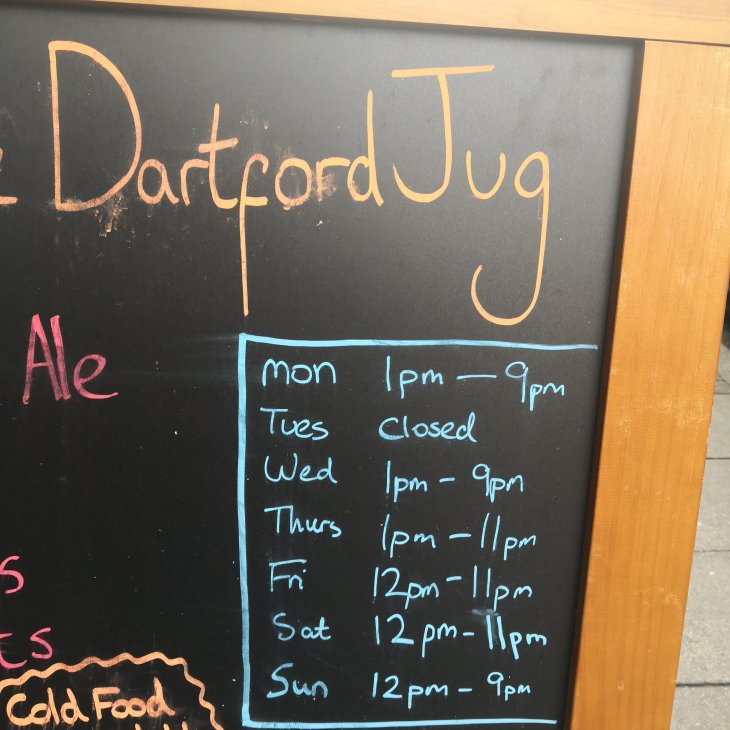 Dartford Jug
Ale
Mon 1pm — 9pm
Tues Closed
Wed 1pm - 9pm
Thurs 1pm - 11pm
Fri 12pm - 11pm
Sat 12pm - 11pm
Sun 12pm - 9pm
Cold Food